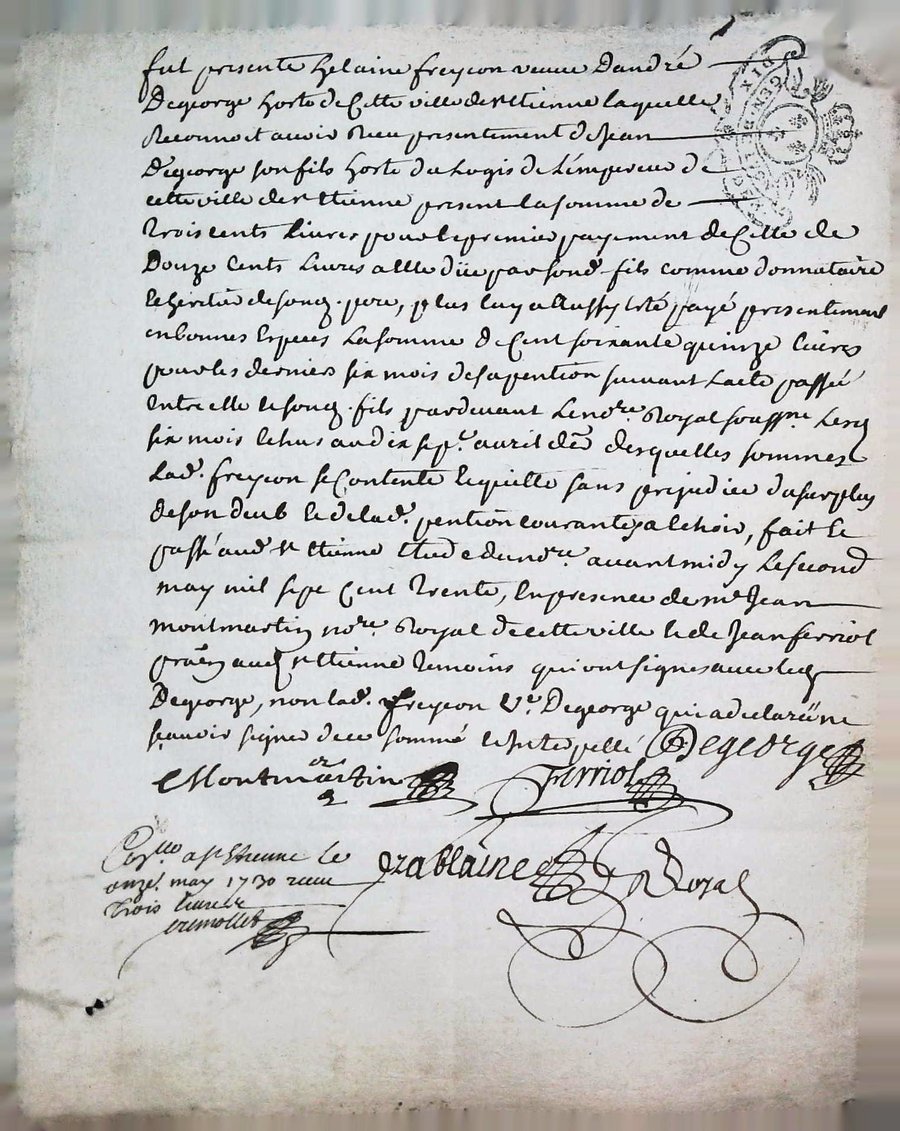 fut presente helaine freycon veuve dandré
Degeorge hoste de Cette ville de st Etienne laquelle
Reconnoit avoir Receu presentement de Jean
Degeorge son fils hoste du Logis de L'empereur de
cette ville de st Etienne present la somme de
Trois cents Livres pour le premier payement de Celle de
Douze Cents Livres a Elle düe par sond. fils comme donnataire
et heritier de sond. pere, plus luy a Aussy Esté payé presentement
en bonnes Especes La somme de Cent soixante quinze Livres
pour les derniers six mois de sa pention suivant L'acte passé
Entre elle et sond. fils pardevant Le nore. Royal soussne. Lesd
six mois Echus au dix sept. avril der desquelles sommes
Lad. freycon se Contente et quitte sans prejudice du surplus
de son deub et de lad. pention courante, a Echoir, fait et
passé aud st Etienne Etude du nore. avant midy Le second
may mil sept Cent Trente, En presence de me Jean
montmartin nore. Royal de cette ville et de Jean ferriol
aud st Etienne Temoins qui ont signés avec led
Degeorge, non lad. freycon Ve. Degeorge qui a declaré ne
sçavoir signer de ce sommé et Interpellé Degeorge
Montmartin ferriol
a st Etienne le
onze. may 1730 receu
Trois livres
cremollet
Royal
DIX
GEN